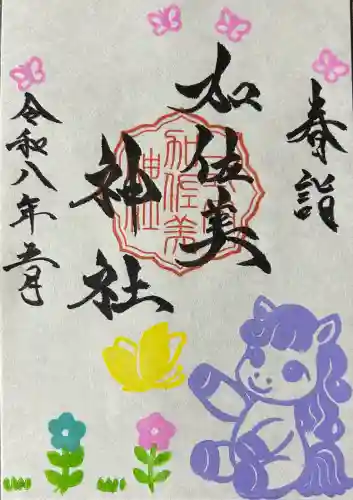 春詣
加佐美
神社
令和八年
月
加佐美
神社